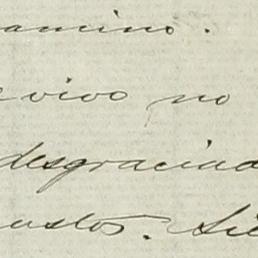 amino.
vivo no
desgraciad
ustos. Sie